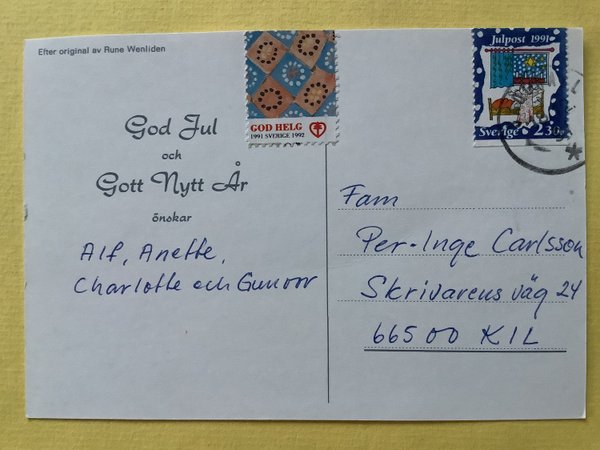 Efter original av Rune Wenliden
God Jul
och
Gott Nytt År
önskar
Alf, Anette,
Charlotte och Gunvor
GOD HELG
1991 SVERIGE 1992
Julpost 1991
Sverige 2.30
Fam
Per-Inge Carlsson
Skrivarens väg 24
665 00 KIL